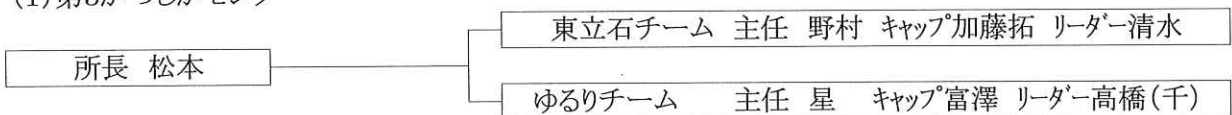 東立石チーム 主任 野村 キャップ加藤拓 リーダー清水
所長 松本
ゆるりチーム 主任 星 キャップ富澤 リーダー高橋(千)